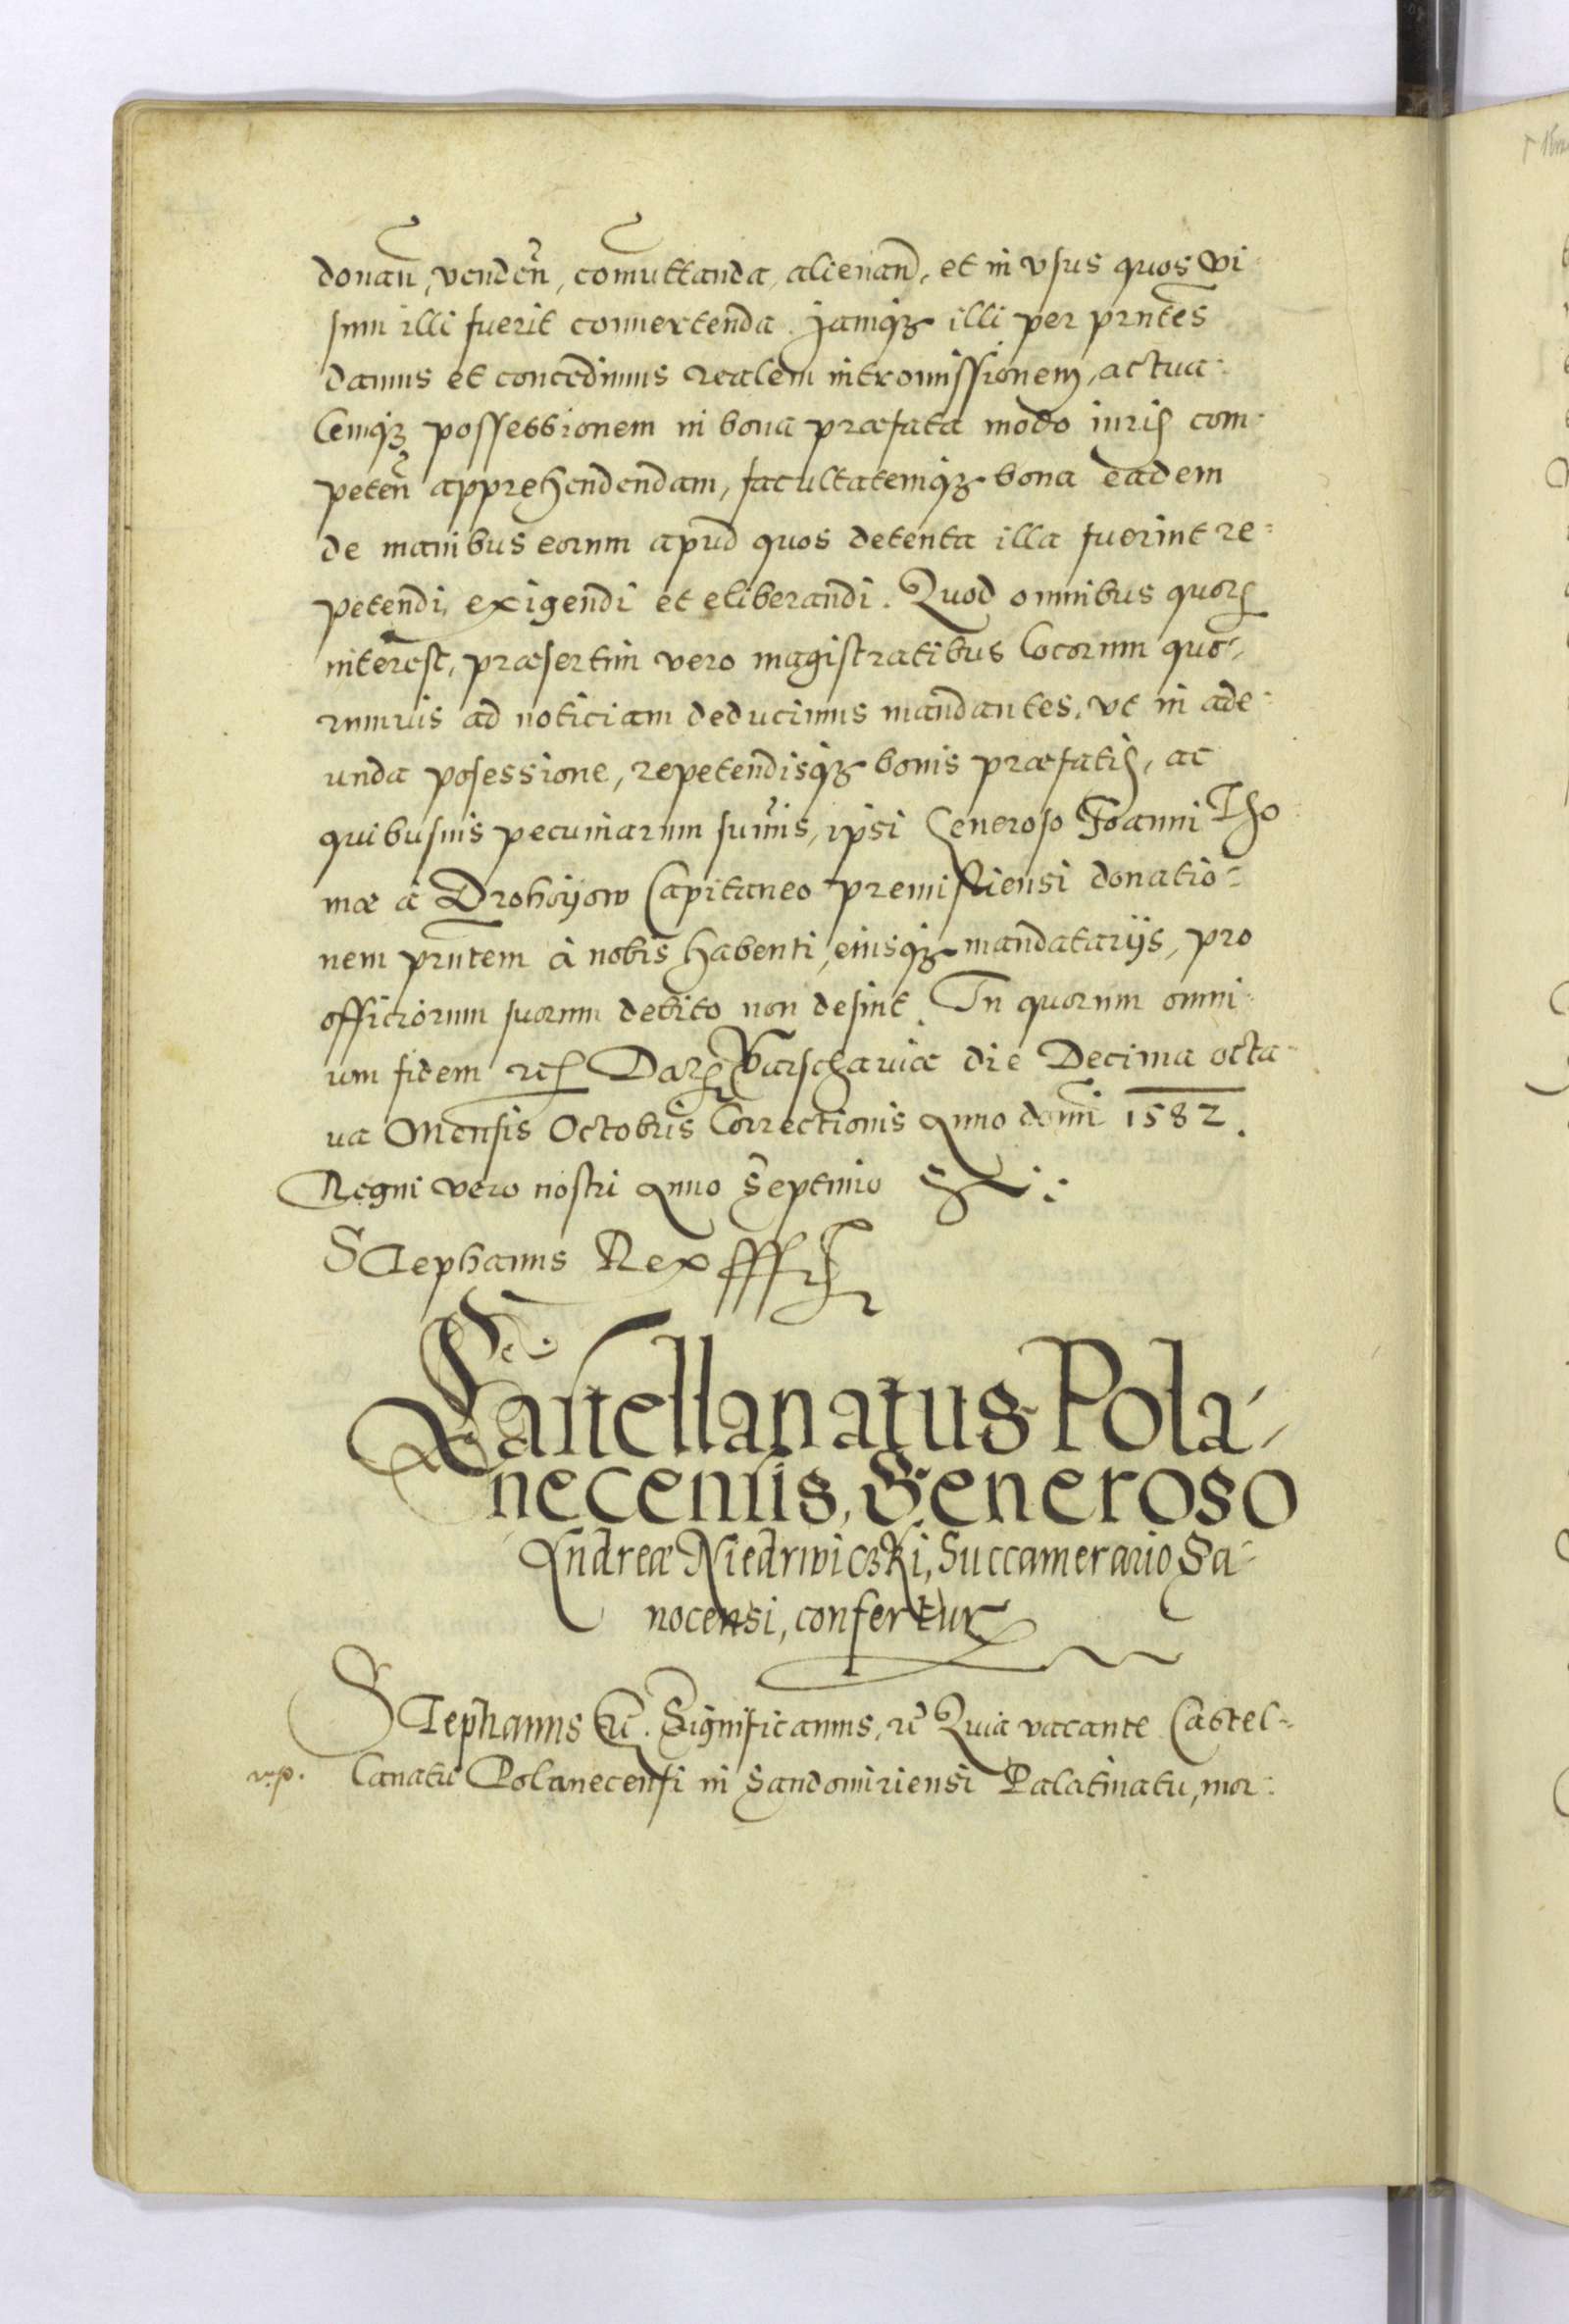 donan̄, venden̄, com̄uttanda, alienan̄d, et in vsus quos vi-
sum illi fuerit conuertenda. Jamq₃ illi per prn̄tes
damus et concedimus realem intromissionem, actua-
lemq₃ possessionem in bona præfata modo iuris com-
peten̄ apprehendendam, facultatemq₃ bona eadem
de manibus eorum apud quos detenta illa fuerint re-
petendi, exigendi et eliberandi. Quod omnibus quorꝫ
interest, præsertim vero magistratibus locorum quo-
rumuis ad noticiam deducimus mandantes, vt in ade-
unda posessione, repetendisq₃ bonis præfatis, ac
quibusuis pecuniarum sum̄is, ipsi Generoso Joanni Tho
mæ à Drohoijow Capitaneo premisliensi donatio-
nem prn̄tem à nobis habenti, eiusq₃ mandatarijs, pro
officiorum suorum debito non desint. In quorum omni-
um fidem rcꝫ Datꝫ Varschauiæ die Decima octa-
ua Mensis Octobris Correctionis Anno domī 1582.
Regni vero nostri Anno Septimo
Stephanus Rex
Castellanatus Pola-
necensis, Generoso
Andreæ Niedrwiczki, Succamerario Sa-
nocensi, confertur
Stephanus etc̄. Significamus, rc̄ Quia vacante Castel-
lanatu Polanecensi in Sandomiriensi Palatinatu, mor-